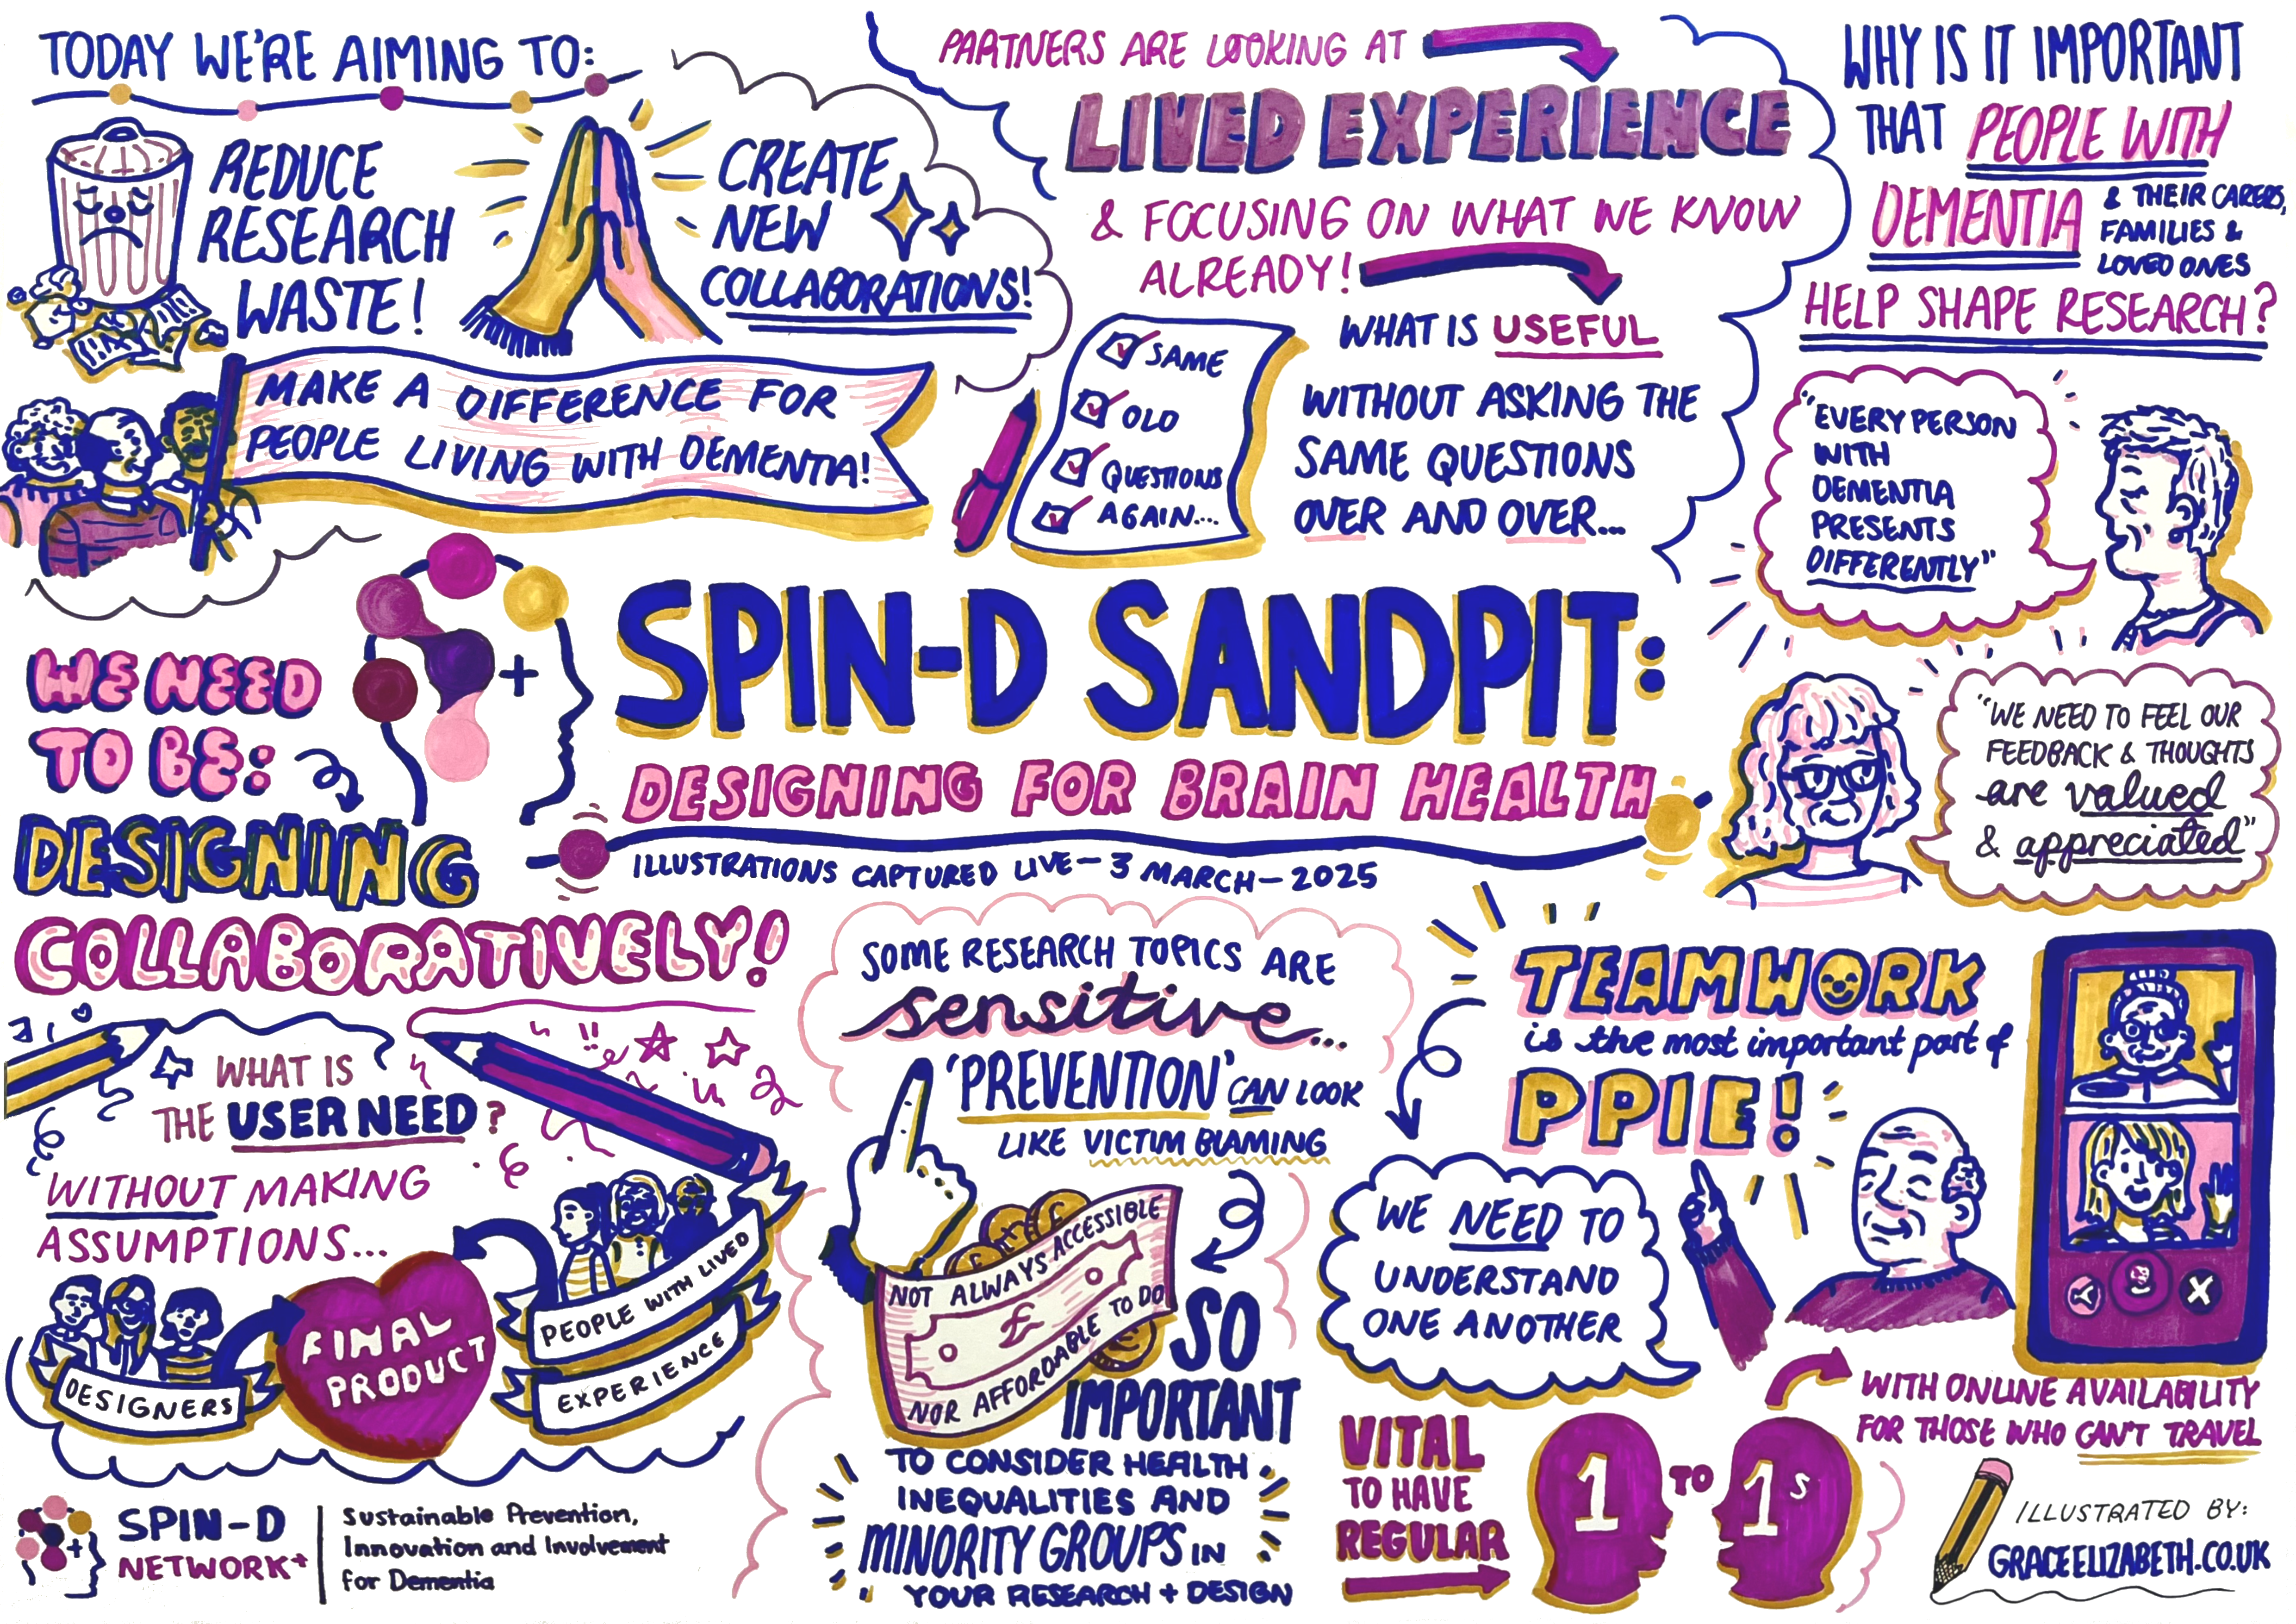 TODAY WE'RE AIMING TO:
REDUCE
RESEARCH
WASTE!
CREATE
NEW
COLLABORATIONS!
MAKE A DIFFERENCE FOR
PEOPLE LIVING WITH DEMENTIA!
PARTNERS ARE LOOKING AT
LIVED EXPERIENCE
& FOCUSING ON WHAT WE KNOW
ALREADY!
WHAT IS USEFUL
WITHOUT ASKING THE
SAME QUESTIONS
OVER AND OVER...
SAME
OLD
QUESTIONS
AGAIN...
WHY IS IT IMPORTANT
THAT PEOPLE WITH
DEMENTIA
& THEIR CARERS,
FAMILIES &
LOVED ONES
HELP SHAPE RESEARCH?
"EVERY PERSON
WITH
DEMENTIA
PRESENTS
DIFFERENTLY"
"WE NEED TO FEEL OUR
FEEDBACK & THOUGHTS
are valued
& appreciated"
SPIN-D SANDPIT:
DESIGNING FOR BRAIN HEALTH
ILLUSTRATIONS CAPTURED LIVE - 3 MARCH - 2025
WE NEED
TO BE:
DESIGNING
COLLABORATIVELY!
WHAT IS
THE USER NEED?
WITHOUT MAKING
ASSUMPTIONS...
DESIGNERS
FINAL
PRODUCT
PEOPLE WITH LIVED
EXPERIENCE
SOME RESEARCH TOPICS ARE
sensitive...
'PREVENTION' CAN LOOK
LIKE VICTIM BLAMING
NOT ALWAYS ACCESSIBLE
£
NOR AFFORDABLE TO DO
SO
IMPORTANT
TO CONSIDER HEALTH
INEQUALITIES AND
MINORITY GROUPS IN
YOUR RESEARCH + DESIGN
TEAMWORK
is the most important part of
PPIE!
WE NEED TO
UNDERSTAND
ONE ANOTHER
VITAL
TO HAVE
REGULAR
1 TO 1s
WITH ONLINE AVAILABILITY
FOR THOSE WHO CAN'T TRAVEL
SPIN-D
NETWORK+
Sustainable Prevention,
Innovation and Involvement
for Dementia
ILLUSTRATED BY:
GRACEELIZABETH.CO.UK